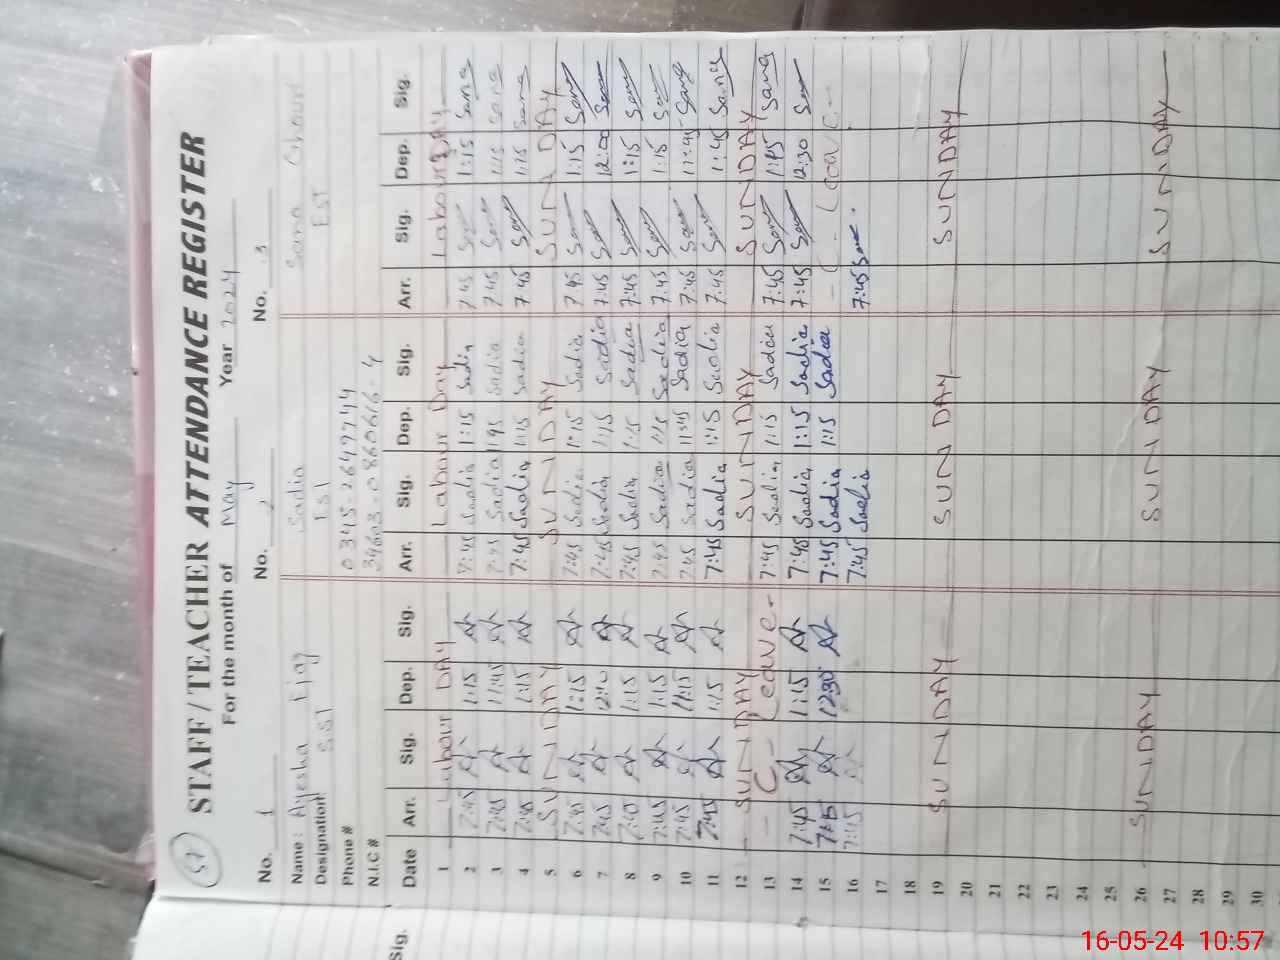 57
STAFF / TEACHER ATTENDANCE REGISTER
For the month of May Year 2024
No. 1 No. 2 No. 3
Name: Ayesha Ejaz Sadia Sana
Designation SST EST EST
Phone # 0345-2649744
N.I.C #
Date Arr. Sig. Dep. Sig. Arr. Sig. Dep. Sig. Arr. Sig. Dep. Sig.
1 Labour DAY Labour Day Labour DAY
2 7:45 1:15 7:45 Sadia 1:15 Sadia 7:45 Sana 1:15 Sana
3 7:45 11:45 7:45 Sadia 7:45 Sana 1:15 Sana
4 7:45 1:15 7:45 Sadia 1:15 Sadia 7:45 Sana 1:15 Sana
5 SUNDAY SUNDAY SUNDAY
6 7:45 1:15 7:45 Sadia 1:15 Sadia 7:45 Sana 1:15 Sana
7 7:45 7:45 Sadia 1:15 Sadia 7:45 Sana 12:00 Sana
8 1:15 7:45 Sadia 1:15 Sadia 7:45 Sana 1:15 Sana
9 7:45 1:15 7:45 Sadia 1:15 Sadia 7:45 Sana 1:15 Sana
10 7:45 7:45 Sadia 11:45 Sadia 7:45 Sana 11:45 Sana
11 7:45 1:15 7:45 Sadia 1:15 Sadia 7:45 Sana Sana
12 SUNDAY SUNDAY SUNDAY
13 C- Leave - 7:45 Sadia 1:15 Sadia 7:45 Sana Sana
14 7:45 1:15 7:45 Sadia 1:15 Sadia 7:45 Sana 12:30 Sana
15 7:45 12:30 7:45 Sadia 1:15 Sadia
16 7:45 7:45 Sadia 7:45 Sana
17
18
19 SUNDAY SUNDAY SUNDAY
20
21
22
23
24
25
26 SUNDAY SUNDAY SUNDAY
27
28
29
30
Sig.
16-05-24 10:57